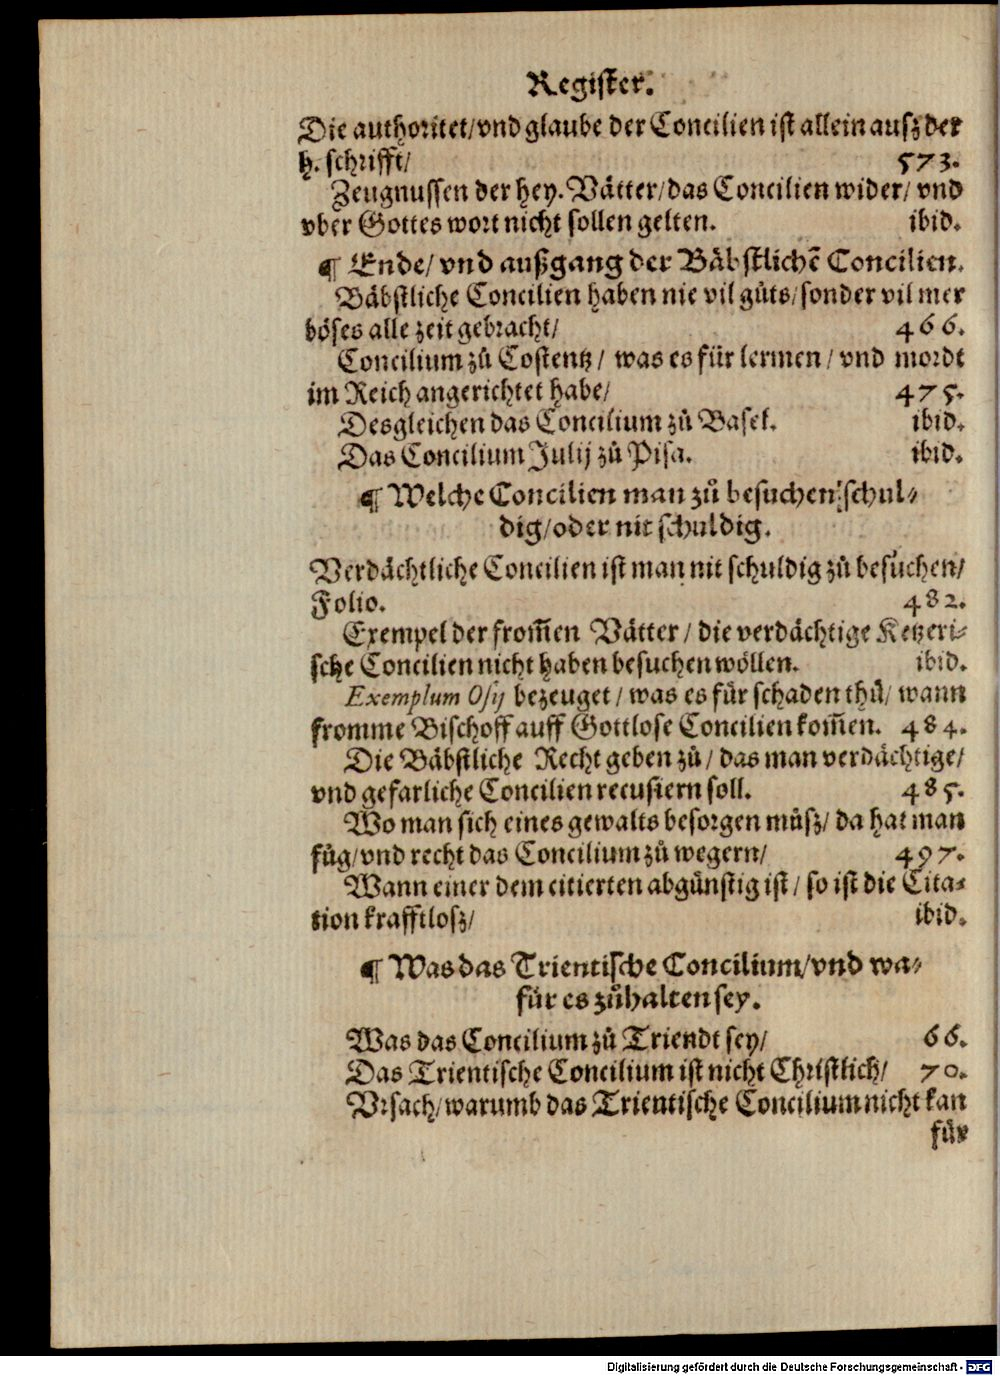 Register.
Die authoritet/ vnd glaube der Concilien ist allein ausz der
h. schrifft/ 573.
Zeugnussen der hey. Vätter/ das Concilien wider/ vnd
vber Gottes wort nicht sollen gelten. ibid.
¶ Ende/ vnd außgang der Bäbstlichē Concilien.
Bäbstliche Concilien haben nie vil gůts/ sonder vil mer
böses alle zeit gebracht/ 466.
Concilium zů Costentz/ was es für lermen/ vnd mordt
im Reich angerichtet habe/ 475.
Desgleichen das Concilium zů Basel. ibid.
Das Concilium Julij zů Pisa. ibid.
¶ Welche Concilien man zů besuchen schul-
dig/ oder nit schuldig.
Verdächtliche Concilien ist man nit schuldig zů besůchen/
Folio. 482.
Exempel der from̄en Vätter/ die verdächtige Ketzeri-
sche Concilien nicht haben besuchen wöllen. ibid.
Exemplum Osij bezeuget/ was es für schaden thů/ wann
fromme Bischoff auff Gottlose Concilien kom̄en. 484.
Die Bäbstliche Recht geben zů/ das man verdächtige/
vnd gefarliche Concilien recusiern soll. 485.
Wo man sich eines gewalts besorgen můsz/ da hat man
fůg/ vnd recht das Concilium zů wegern/ 497.
Wann einer dem citierten abgünstig ist/ so ist die Cita-
tion krafftlosz/ ibid.
¶ Was das Trientische Concilium/ vnd wa-
für es zůhalten sey.
Was das Concilium zů Triendt sey/ 66.
Das Trientische Concilium ist nicht Christlich/ 70.
Vrsach/ warumb das Trientische Concilium nicht kan
für
Digitalisierung gefördert durch die Deutsche Forschungsgemeinschaft - DFG